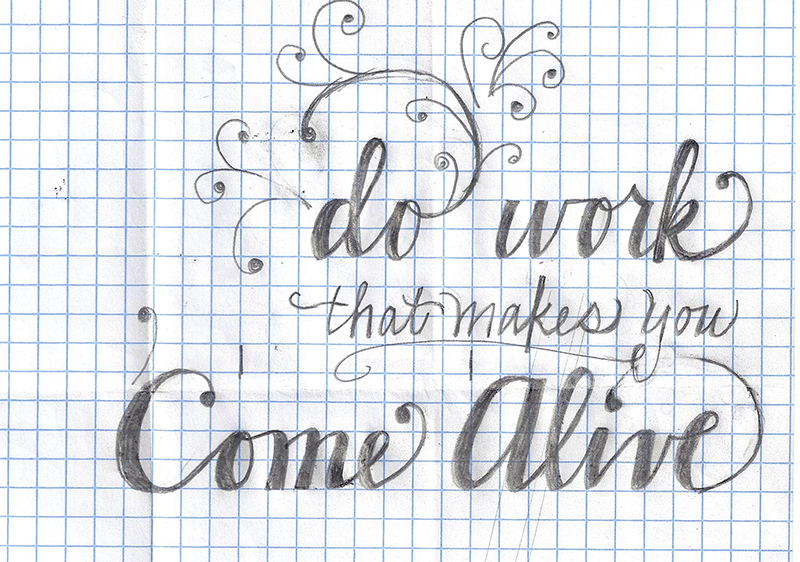 do work
that makes you
Come Alive